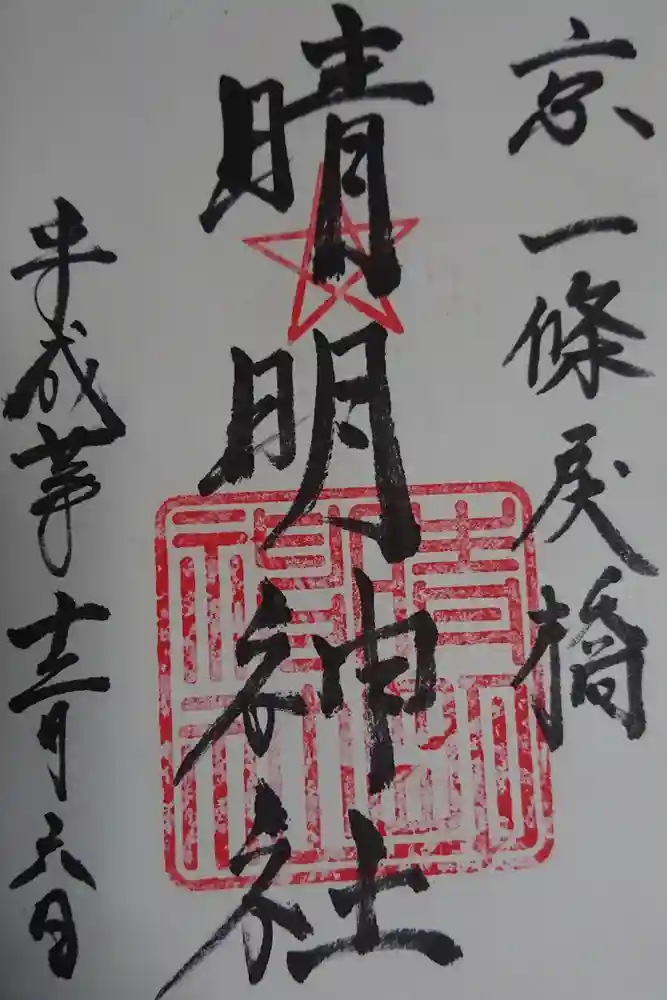 京一條戻橋
晴明神社
平成廿年十二月六日
晴明神社